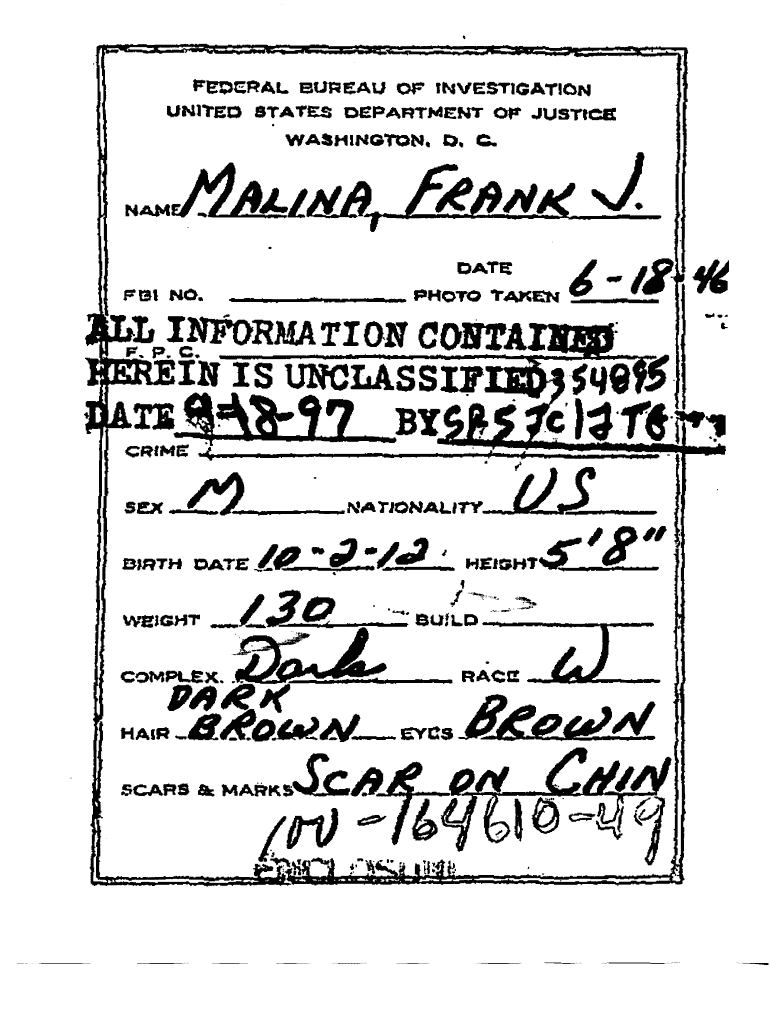 FEDERAL BUREAU OF INVESTIGATION
UNITED STATES DEPARTMENT OF JUSTICE
WASHINGTON, D. C.
NAME MALINA, FRANK J.
DATE
FBI NO. PHOTO TAKEN 6-18-46
ALL INFORMATION CONTAINED
F. P. C.
HEREIN IS UNCLASSIFIED 354895
DATE 9-18-97 BY
CRIME
SEX M NATIONALITY US
BIRTH DATE 10-2-12 HEIGHT 5'8"
WEIGHT 130 BUILD
COMPLEX. Dark RACE W
DARK
HAIR BROWN EYES BROWN
SCARS & MARKS SCAR ON CHIN
100-164610-49